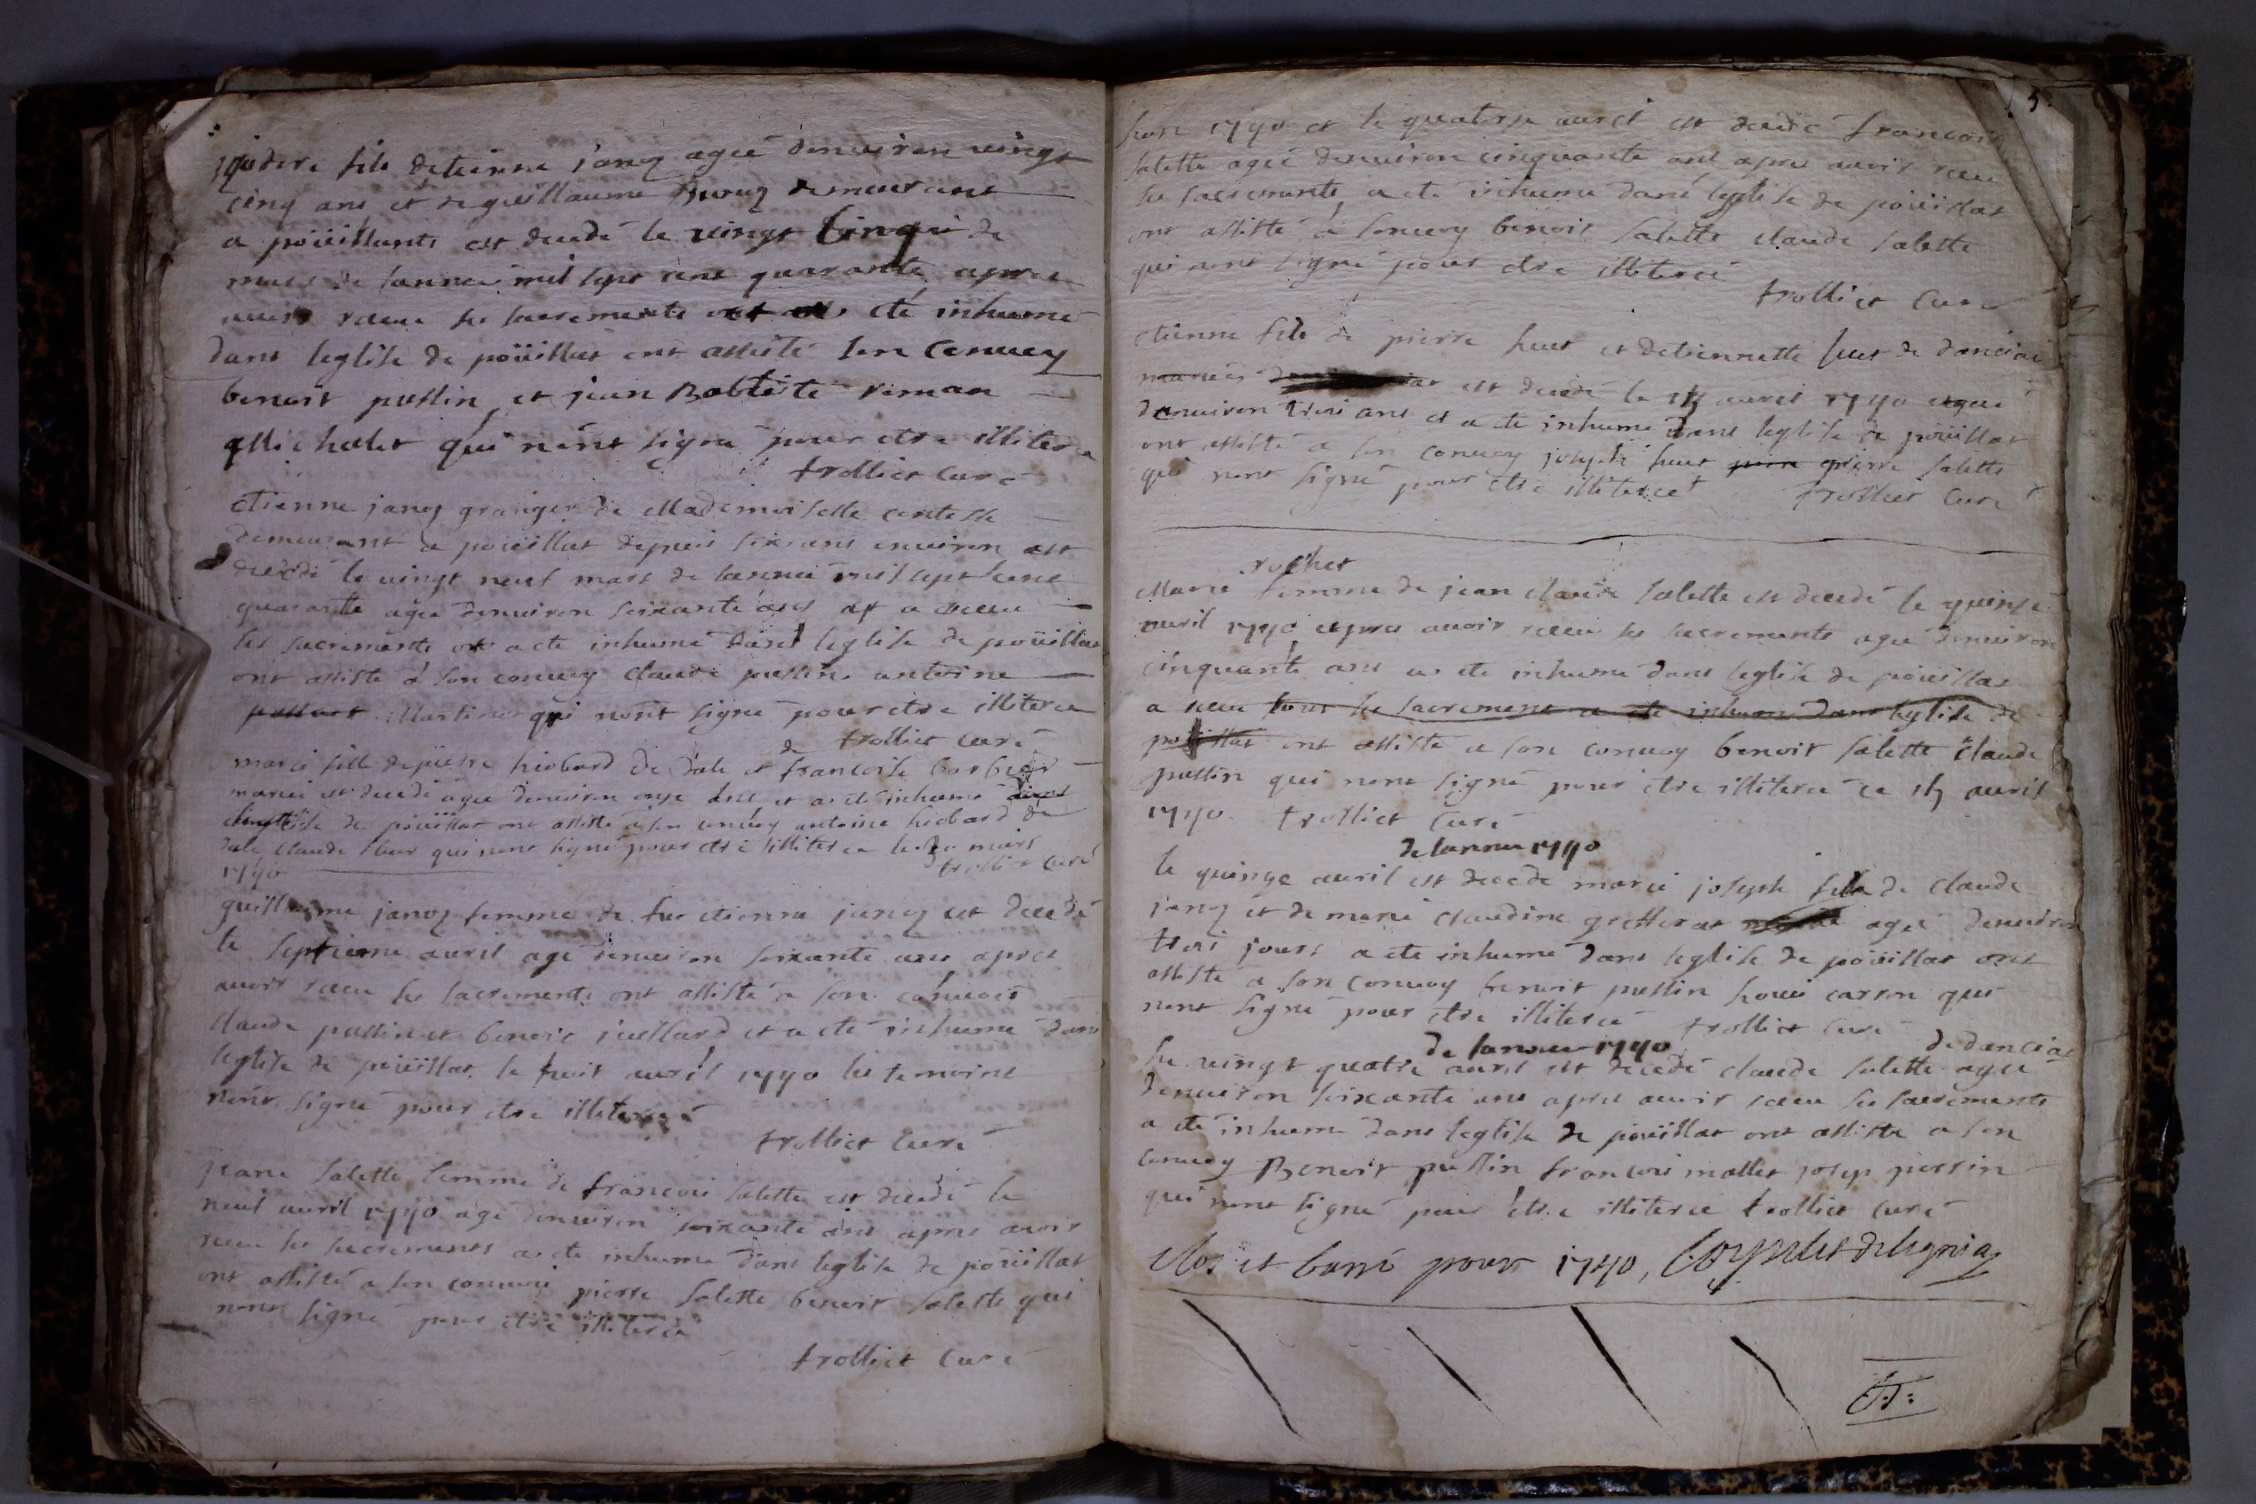 fils detienne janoz ageé denuiron vingt
cinq ans et de guillaume demeurant
a poüillants est decedé le vingt cinq de
mars de lannee mil sept cent quarante apres
auoir receu les sacrements été inhumé
dans leglise de poüillat ont assisté son Conuoy
benoit pussin et jean Babtiste
Michalet qui nont signé pour etre illiteré
trolliet Curé
étienne janoz granger de Mademoiselle
demeurant a poüillat depuis six ans enuiron est
decedé le vingt neuf mars de lannee mil sept cent
quarante agee denuiron soixante ans et a receu
les sacrements et a ete inhumé dans leglise de poüillat
ont assisté á son conuoy claude pussin antoine
Martinet qui nont signé pour etre illiteré
trolliet curé
marie fille de pierre hiobard de dale et francoise barbier
mariés est decedé agee denuiron onze ans et a eté inhumé dans
leglise de poüillat ont assisté a son conuoy antoine hiobard de
dale claude huet qui nont signé pour etre illiteré le 30 mars
1740 trolliet curé
guillaume janoz femme de feu etienne janoz est decedé
le septieme auril agé denuiron soixante ans apres
auoir receu les sacrements ont assisté a son conuois
claude pussin et benoit juillard et a eté inhumé dans
leglise de poüillat le huit auril 1740 les temoins
nont signé pour etre illiteré
trolliet Curé
jeane salette femme de francois salette est decedé le
neuf auril 1740 agé denuiron soixante ans apres auoir
receu les sacrements a eté inhumé dans leglise de poüillat
ont assisté a son conuoi pierre salette benoit salette qui
nont signé pour etre illiteré
trolliet Curé
lan 1740 et le quatorse auril est decedé francois
salette agé denuiron cinquante ans apres auoir receu
les sacrements a eté inhumé dans leglise de poüillat
ont assisté á conuoy benoit salette claude salette
qui nont signé pour etre illiteré
trolliet Curé
étienne fils de pierre huet et detiennette huet de dancia
mariés est decedé le auril 1740 agé
denuiron trois ans et a eté inhumé dans leglise de poüillat
ont assisté a son conuoy joseph huet pierre salette
qui nont signé pour etre illiteré trolliet Curé
rochet
Marie femme de jean claude salette est decedé le quinse
auril 1740 apres auoir receu les sacrements ageé denuiron
cinquante ans a eté inhumé dans leglise de poüillat
a receu tous les sacrement a eté inhumé dans leglise de
poüillat ont assisté a son conuoy benoit salette claude
pussin qui nont signé pour etre illiteré ce auril
1740 trolliet Curé
de lannee 1740
le quinze auril est decede marie joseph fils de claude
janoz et de marie claudine agé denuiron
trois jours a eté inhumé dans leglise de poüillat ont
assisté a son conuoy benoit pussin carron qui
nont signé pour etre illiteré trolliet Curé
de lannee 1740 de dancia
le vingt quatre auril est decedé claude salette ageé
denuiron soixante ans apres auoir receu les sacrements
a eté inhumé dans leglise de poüillat ont assisté a son
conuoy Benoit pussin francois mollet josep perrin
qui nont signé pour etre illiteré trolliet curé
Clos et barré pour 1740,